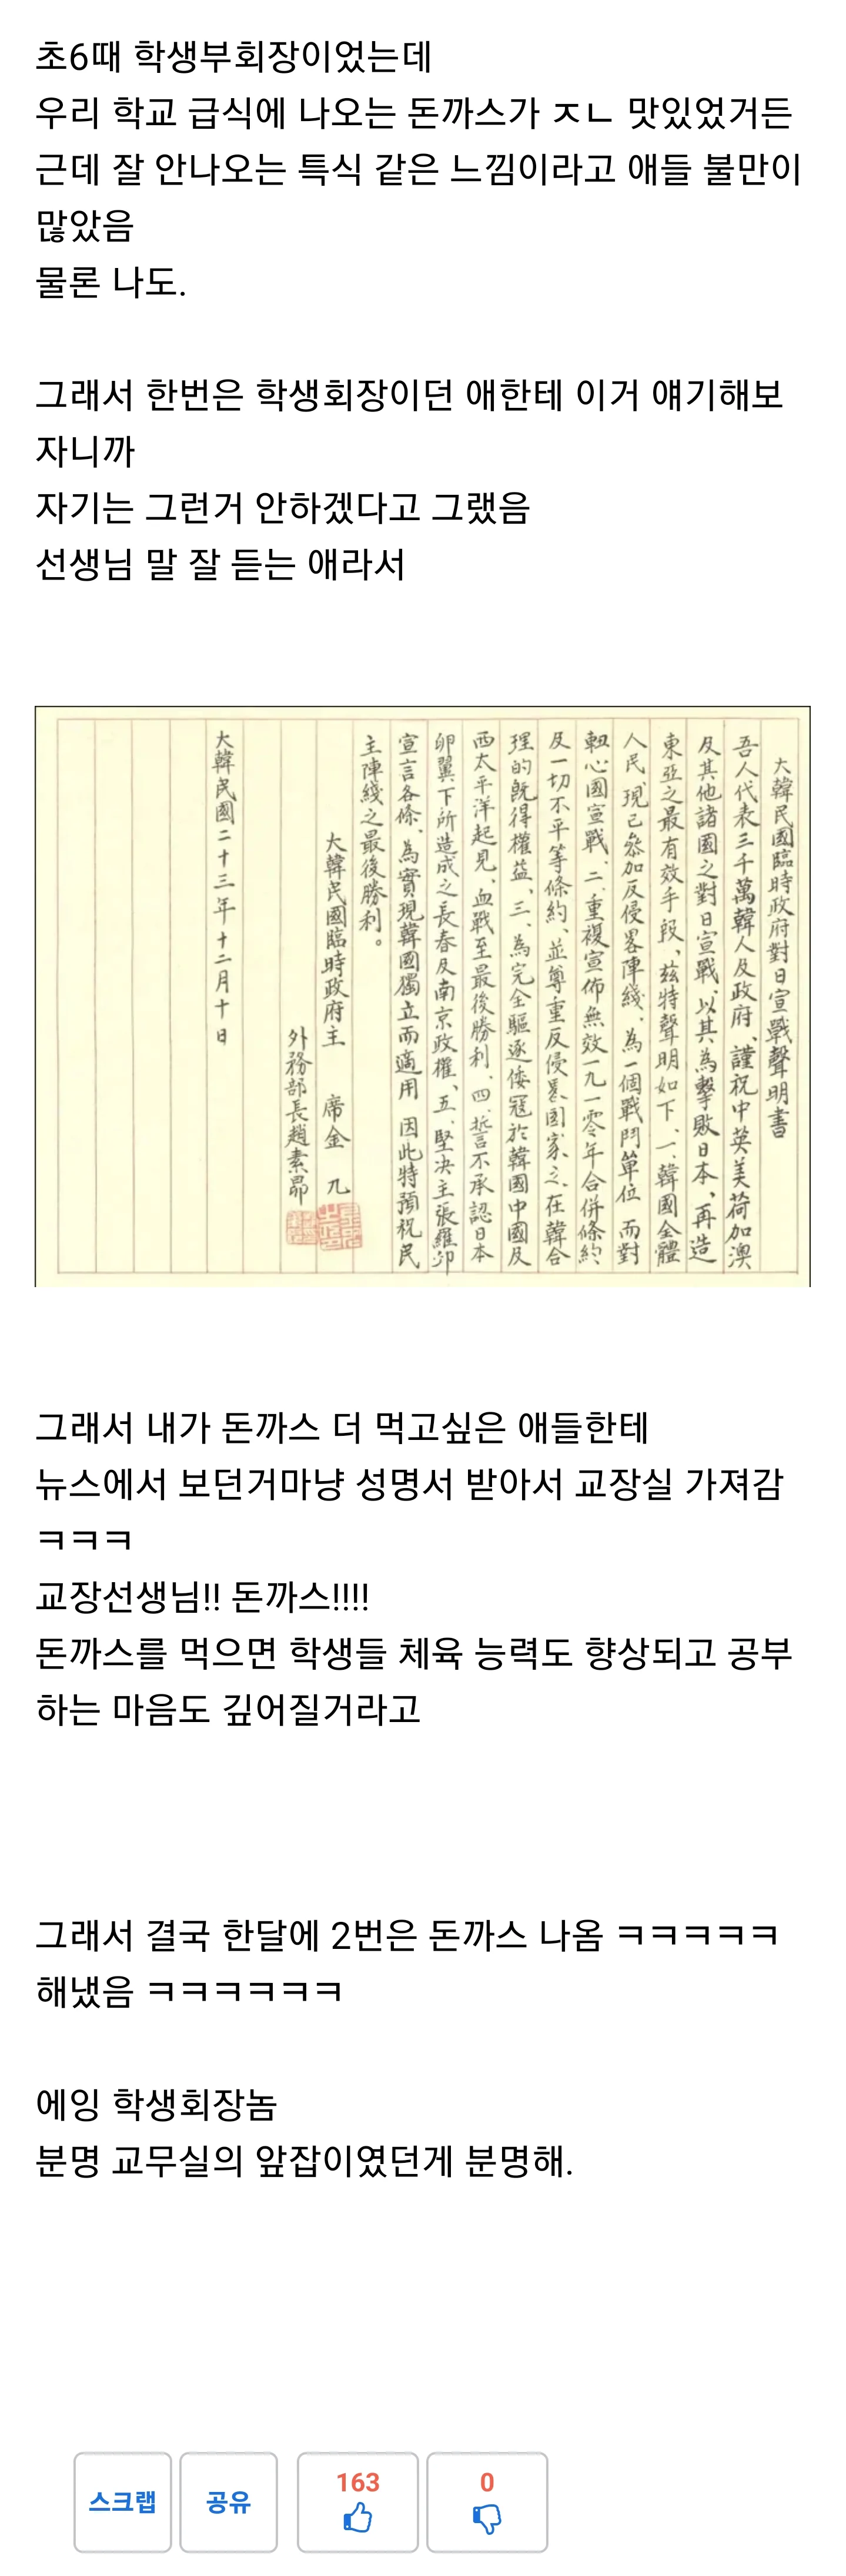 초6때 학생부회장이었는데
우리 학교 급식에 나오는 돈까스가 ㅈㄴ 맛있었거든
근데 잘 안나오는 특식 같은 느낌이라고 애들 불만이
많았음
물론 나도.
그래서 한번은 학생회장이던 애한테 이거 얘기해보
자니까
자기는 그런거 안하겠다고 그랬음
선생님 말 잘 듣는 애라서
大韓民國臨時政府對日宣戰聲明書
吾人代表三千萬韓人及政府、謹祝中英美荷加澳
及其他諸國之對日宣戰、以其為擊敗日本、再造
東亞之最有效手段、茲特聲明如下、一、韓國全體
人民、現已參加反侵畧陣綫、為一個戰鬥單位 而對
軸心國宣戰、二、重複宣佈無效一九一零年合併條約
及一切不平等條約、並尊重反侵畧國家之、在韓合
理的既得權益、三、為完全驅逐倭寇於韓國中國及
西太平洋起見、血戰至最後勝利、四、誓不承認日本
卵翼下所造成之長春及南京政權、五、堅决主張羅卯
宣言各條、為實現韓國獨立而適用 因此特預祝民
主陣綫之最後勝利。
大韓民國臨時政府主 席金 九
外務部長趙素昻
大韓民國二十三年十二月十日
그래서 내가 돈까스 더 먹고싶은 애들한테
뉴스에서 보던거마냥 성명서 받아서 교장실 가져감
ㅋㅋㅋ
교장선생님!! 돈까스!!!!
돈까스를 먹으면 학생들 체육 능력도 향상되고 공부
하는 마음도 깊어질거라고
그래서 결국 한달에 2번은 돈까스 나옴 ㅋㅋㅋㅋㅋ
해냈음 ㅋㅋㅋㅋㅋㅋ
에잉 학생회장놈
분명 교무실의 앞잡이였던게 분명해.
스크랩 공유 163 0